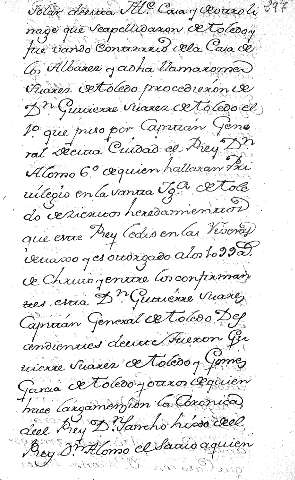 397
Solar deesta Ylle Casa y de otro li
nage que se apellidaron de toledo y
fue vando Contrario de la Casa de
los Albarez y asta llamaromse
Suarez de toledo procedieron de
Dn Gutierre Suarez de toledo el
1o que puso por Capitan Gene
ral de esta Ciudad el Rey Dn
Alonso 6o de quien hallaran Pri
vilegio en la Santa Yga de tole
do de ciertos heredamentos
que este Rey le dio en las
y es otorgado a los 1099 as
de Christo y entre los confirman
tes esta Dn Gutierre Suarez
Capitan General de toledo Des
cendientes de este Fueron Gu
tierre Suarez de toledo y Gomez
Garcia de toledo y otros de quien
hace larga mension la Coronica
deel Rey Dn Sancho hijo deel
Rey Dn Alonso el Savio a quien